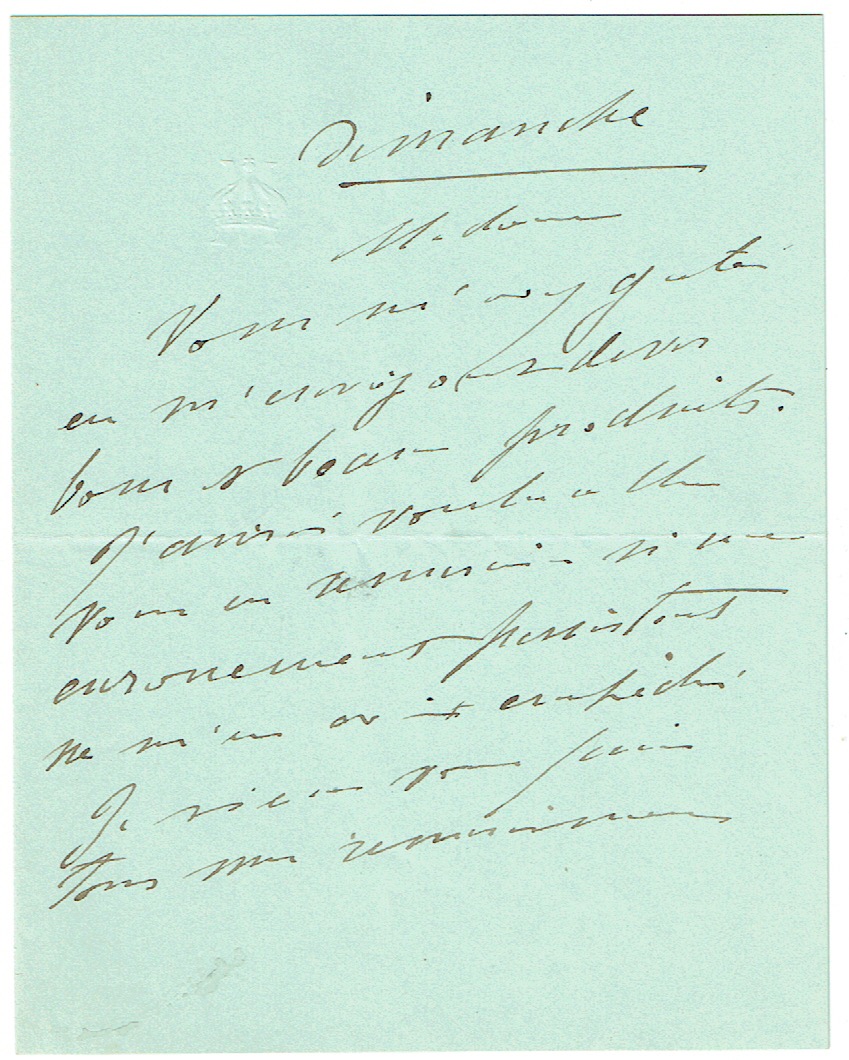 Dimanche
Madame
Vous m'avez gaté
en m'envoyant de vos
bons et beaux produits.
J'aurais voulu aller
vous en remercier si un
enrouement persistant
ne m'en avait empêché
Je viens vous faire
tous mes remerciements